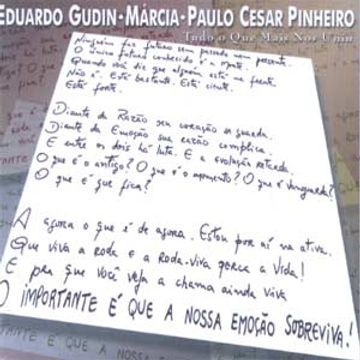 EDUARDO GUDIN·MÁRCIA·PAULO CESAR PINHEIRO
Tudo o Que Mais Nos Uniu
Ninguém faz futuro sem passado nem presente.
O único futuro conhecido é a morte.
Quando você diz que alguém está na frente,
Não é. Está bastante. Está ciente.
Está forte.
Diante da Razão seu coração se guarda.
Diante da Emoção sua razão complica.
E entre os dois há luta. E a evolução retarda.
O que é o antigo? O que é o momento? O que é vanguarda?
O que é que fica?
A agora o que é de agora. Estou por aí na ativa.
Que viva a roda e a roda-viva perca a vida!
E pra que você veja a chama ainda viva
O IMPORTANTE É QUE A NOSSA EMOÇÃO SOBREVIVA!